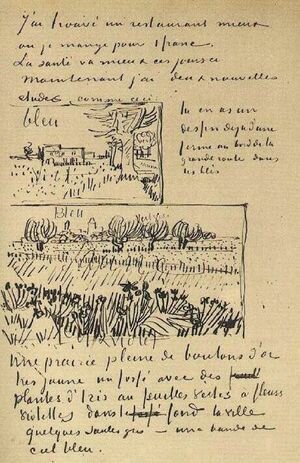 J'ai trouvé un restaurant mieux
ou je mange pour 1 franc.
La santé va mieux ces jours ci
Maintenant j'ai deux nouvelles
etudes comme ceci
bleu
tu en as un
dessin deja d'une
ferme au bord de la
grande route dans
les blés
Bleu
Une prairie pleine de boutons d'or
tres jaune un fossé avec des
plantes d'Iris au feuilles vertes a fleurs
violettes dans le fond la ville
quelques saules gris – une bande de
ciel bleu.